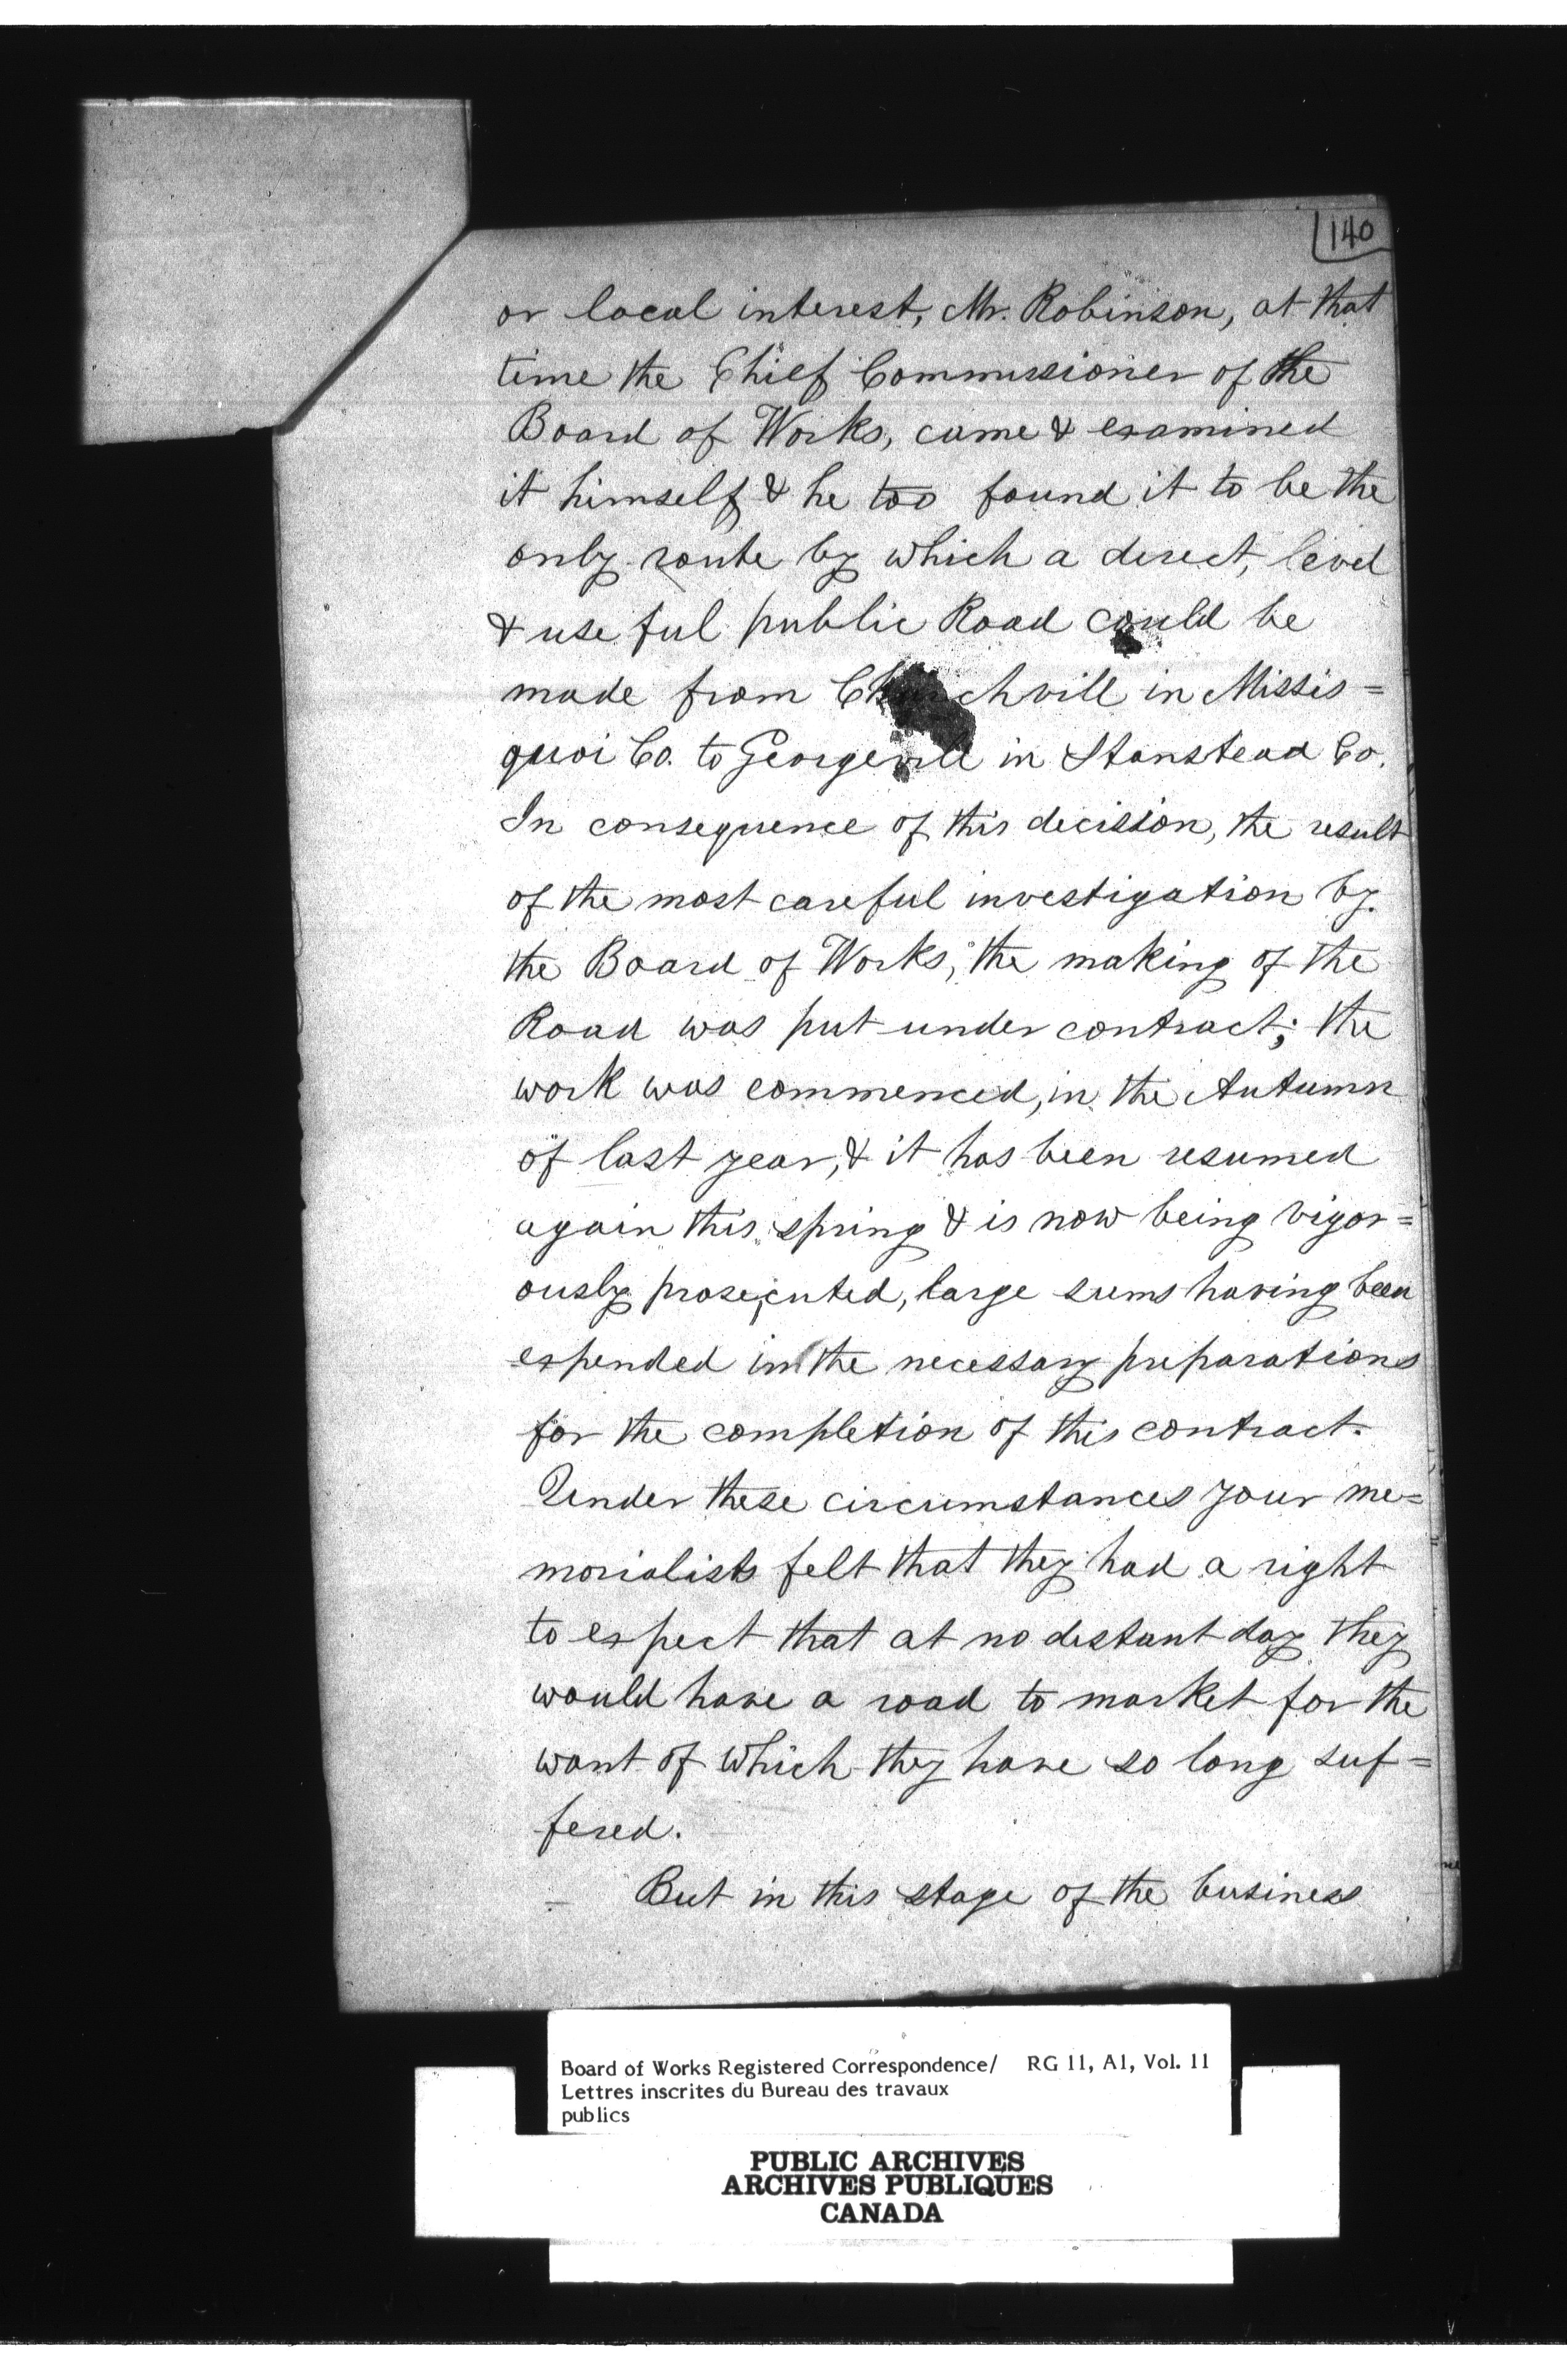 140
or local interest, Mr. Robinson, at that
time the Chief Commissioner of the
Board of Works, came & examined
it himself & he too found it to be the
only route by which a direct, level
& useful public Road could be
made from Churchvill in Missis=
quoi Co. to Georgevill in Stanstead Co.
In consequence of this decision, the result
of the most careful investigation by
the Board of Works, the making of the
Road was put under contract; the
work was commenced, in the Autumn
of last year, & it has been resumed
again this spring & is now being vigor=
ously prosecuted, large sums having been
expended in the necessary preparations
for the completion of this contract.
Under these circumstances your me=
morialists felt that they had a right
to expect that at no distant day they
would have a road to market for the
want of which they have so long suf=
fered.
But in this stage of the business
Board of Works Registered Correspondence/ RG 11, A1, Vol. 11
Lettres inscrites du Bureau des travaux
publics
PUBLIC ARCHIVES
ARCHIVES PUBLIQUES
CANADA